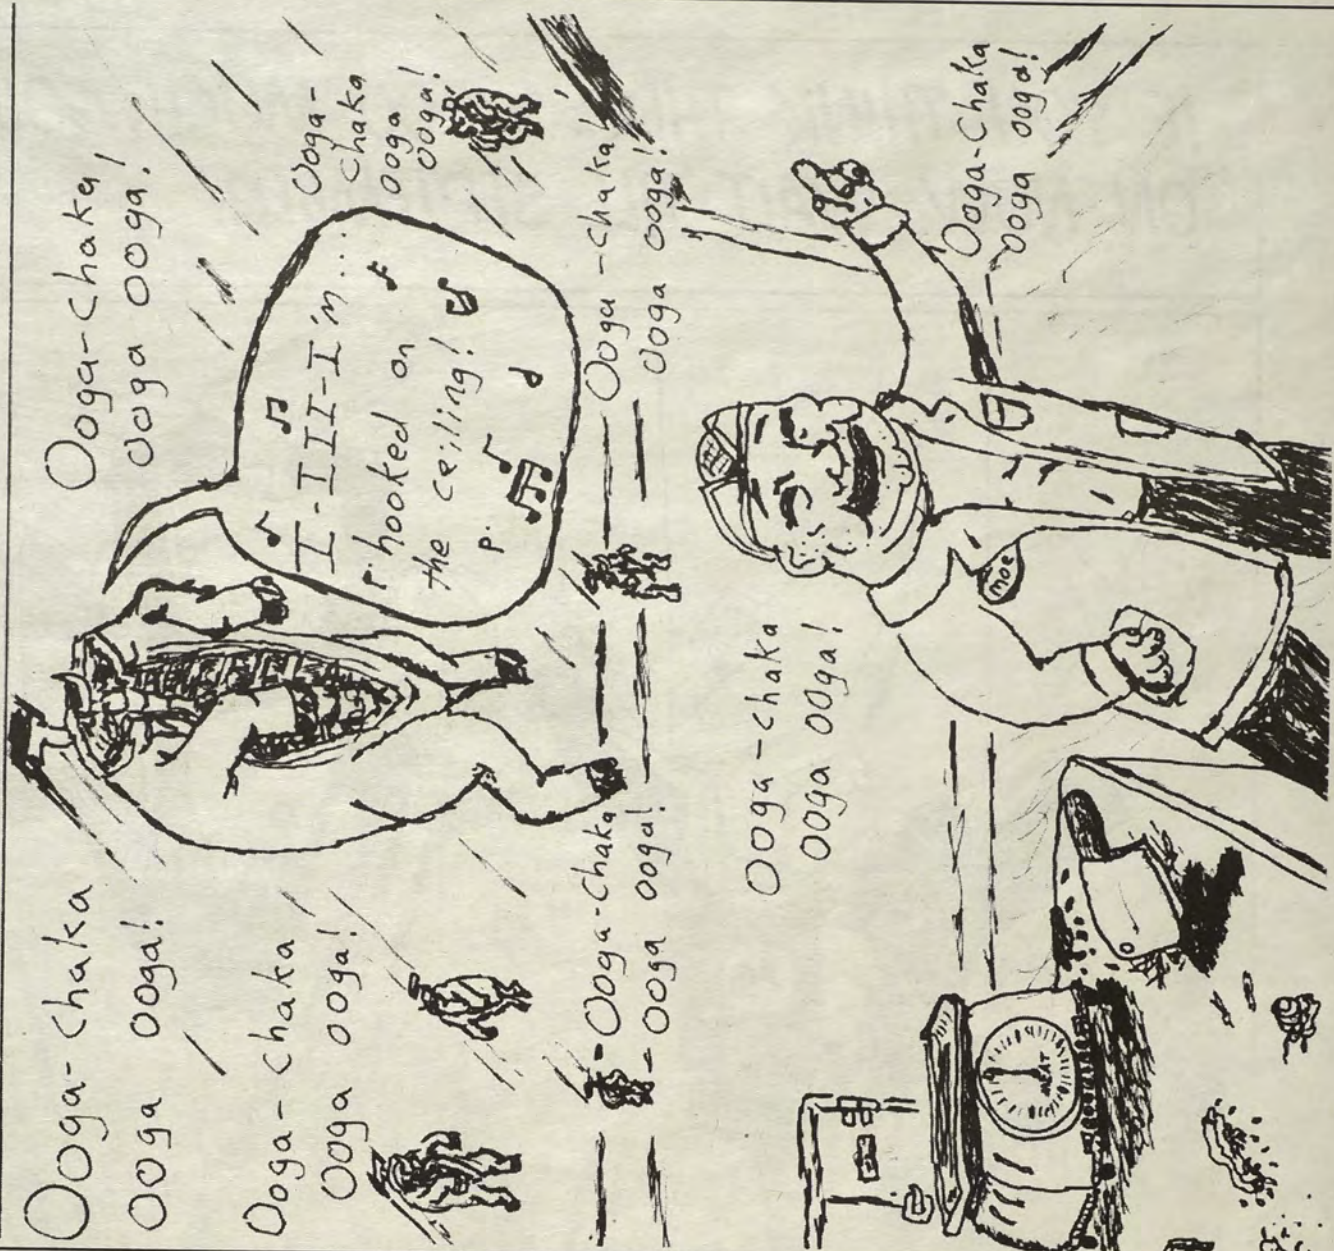 Ooga-chaka
ooga ooga!
Ooga-chaka
ooga ooga!
Ooga-chaka
ooga ooga!
I-I-III-I'm...
hooked on
the ceiling!
Ooga-
chaka
ooga
ooga!
Ooga-chaka
ooga ooga!
Ooga-chaka!
ooga ooga!
Ooga-chaka
ooga ooga!
Ooga-Chaka
ooga ooga!
moe
MEAT